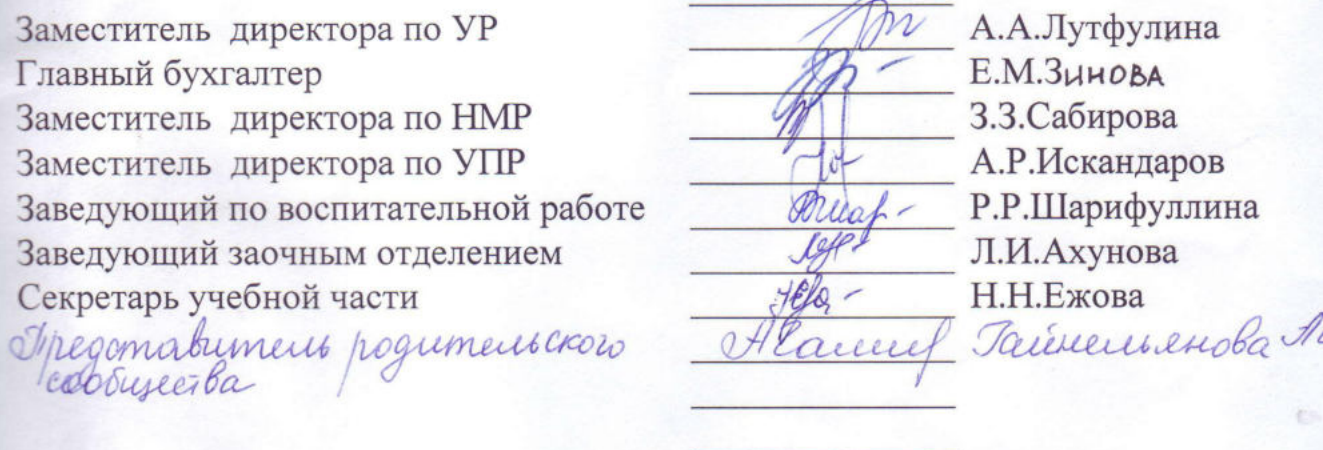 Заместитель директора по УР А.А.Лутфулина
Главный бухгалтер Е.М.Зинова
Заместитель директора по НМР З.З.Сабирова
Заместитель директора по УПР А.Р.Искандаров
Заведующий по воспитательной работе Р.Р.Шарифуллина
Заведующий заочным отделением Л.И.Ахунова
Секретарь учебной части Н.Н.Ежова
Представитель родительского Гайнельянова
сообщества